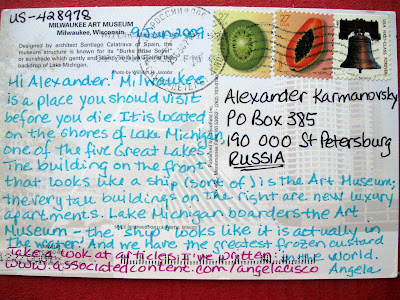 US-428978
MILWAUKEE ART MUSEUM
Milwaukee, Wisconsin
9 Jun 2009
Designed by architect Santiago Calatrava of Spain, the
museum structure is known for its "Burke Brise Soleil"
or sunshade which gently and
backdrop of Lake Michigan.
27
USA
Hi Alexander! Milwaukee
is a place you should visit
before you die. It is located
on the shores of Lake Michigan,
one of the five Great Lakes.
The building on the front
that looks like a ship (sort of) is the Art Museum;
the very tall buildings on the right are new luxury
apartments. Lake Michigan boarders the Art
Museum - the "ship" looks like it is actually in
the water! And we have the greatest frozen custard
in the world.
Angela
Take a look at articles I've written
www.associatedcontent.com/angelacisco
Alexander Karmanovsky
PO Box 385
190 000 St Petersburg
RUSSIA